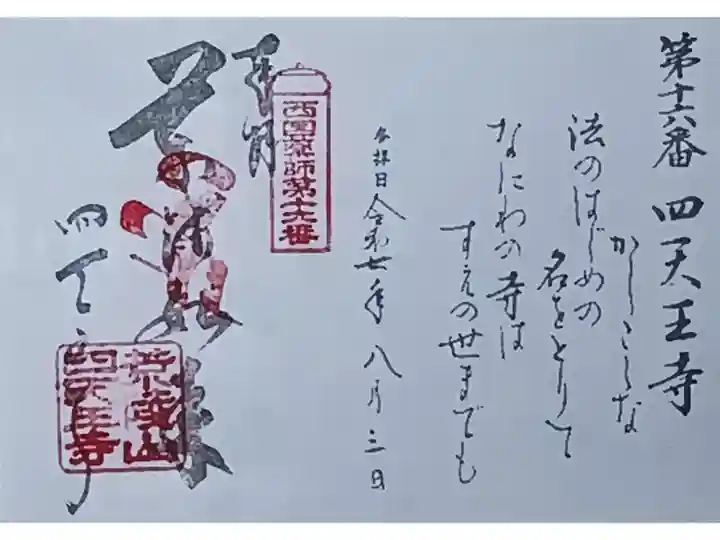 第十六番 四天王寺
かしこしな
法のはじめの
名をとりて
なにわの寺は
すえの世までも
参拝日令和七年八月三日
奉拝
西国薬師第十六番
四天王寺
荒陵山
四天王寺